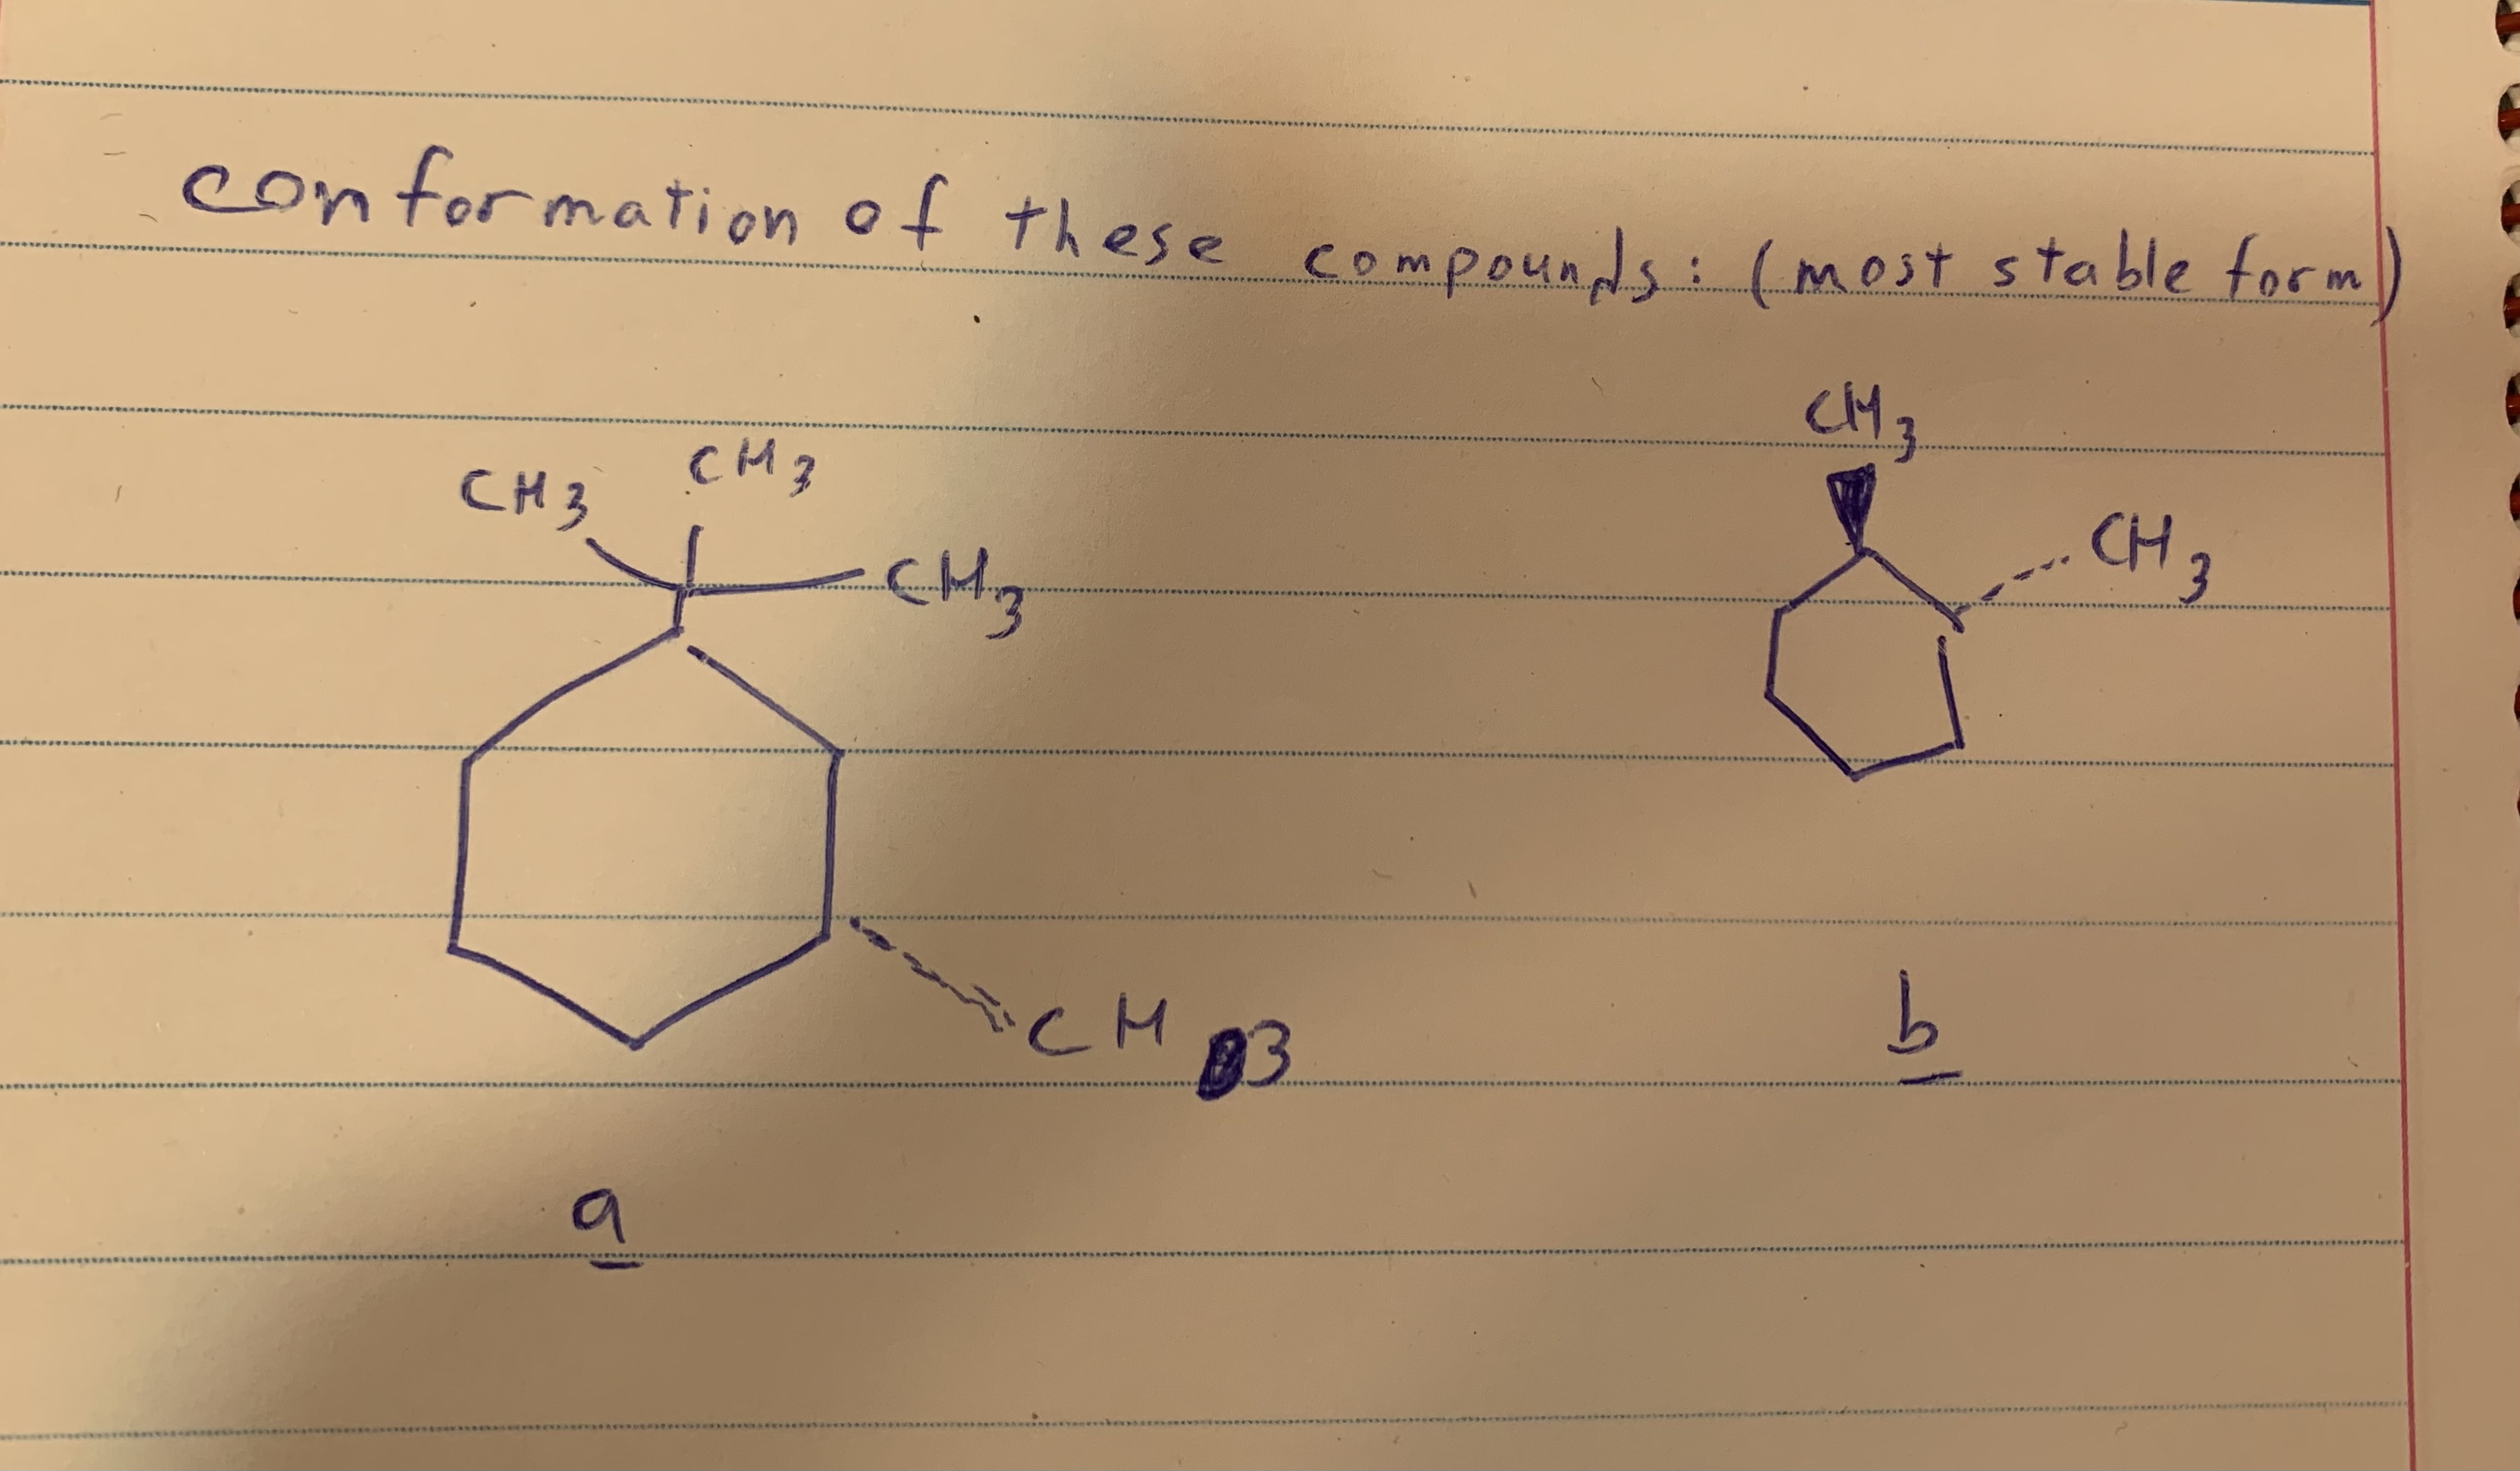 conformation of these compounds: (most stable form)
CH3 CH3
CH3
CH3
a
CH3
CH3
b